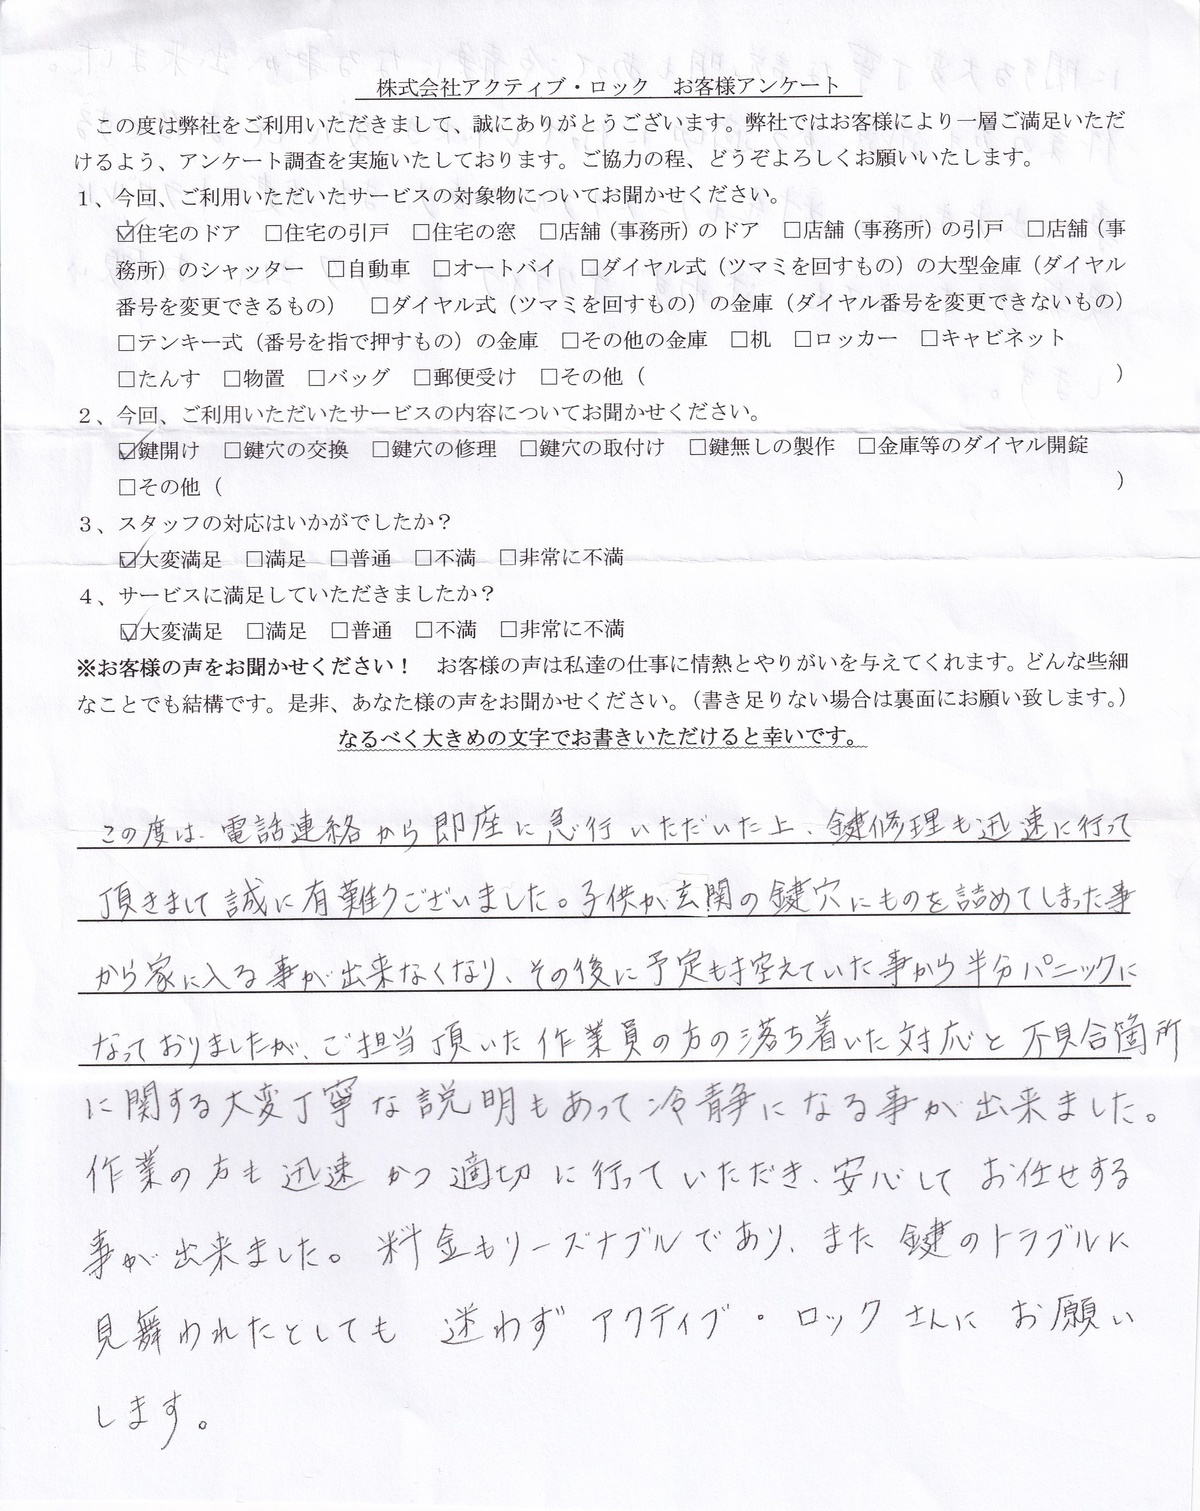 株式会社アクティブ・ロック　お客様アンケート
この度は弊社をご利用いただきまして、誠にありがとうございます。弊社ではお客様により一層ご満足いただ
けるよう、アンケート調査を実施いたしております。ご協力の程、どうぞよろしくお願いいたします。
1、今回、ご利用いただいたサービスの対象物についてお聞かせください。
☑住宅のドア　□住宅の引戸　□住宅の窓　□店舗（事務所）のドア　□店舗（事務所）の引戸　□店舗（事
務所）のシャッター　□自動車　□オートバイ　□ダイヤル式（ツマミを回すもの）の大型金庫（ダイヤル
番号を変更できるもの）　□ダイヤル式（ツマミを回すもの）の金庫（ダイヤル番号を変更できないもの）
□テンキー式（番号を指で押すもの）の金庫　□その他の金庫　□机　□ロッカー　□キャビネット
□たんす　□物置　□バッグ　□郵便受け　□その他（　　　）
2、今回、ご利用いただいたサービスの内容についてお聞かせください。
☑鍵開け　□鍵穴の交換　□鍵穴の修理　□鍵穴の取付け　□鍵無しの製作　□金庫等のダイヤル開錠
□その他（　　　）
3、スタッフの対応はいかがでしたか？
☑大変満足　□満足　□普通　□不満　□非常に不満
4、サービスに満足していただきましたか？
☑大変満足　□満足　□普通　□不満　□非常に不満
※お客様の声をお聞かせください！　お客様の声は私達の仕事に情熱とやりがいを与えてくれます。どんな些細
なことでも結構です。是非、あなた様の声をお聞かせください。（書き足りない場合は裏面にお願い致します。）
なるべく大きめの文字でお書きいただけると幸いです。
この度は、電話連絡から即座に急行いただいた上、鍵修理も迅速に行って
頂きまして誠に有難うございました。子供が玄関の鍵穴にものを詰めてしまった事
から家に入る事が出来なくなり、その後に予定も控えていた事から半分パニックに
なっておりましたが、ご担当頂いた作業員の方の落ち着いた対応と不具合箇所
に関する大変丁寧な説明もあって冷静になる事が出来ました。
作業の方も迅速かつ適切に行っていただき、安心してお任せする
事が出来ました。料金もリーズナブルであり、また鍵のトラブルに
見舞われたとしても迷わずアクティブ・ロックさんにお願い
します。